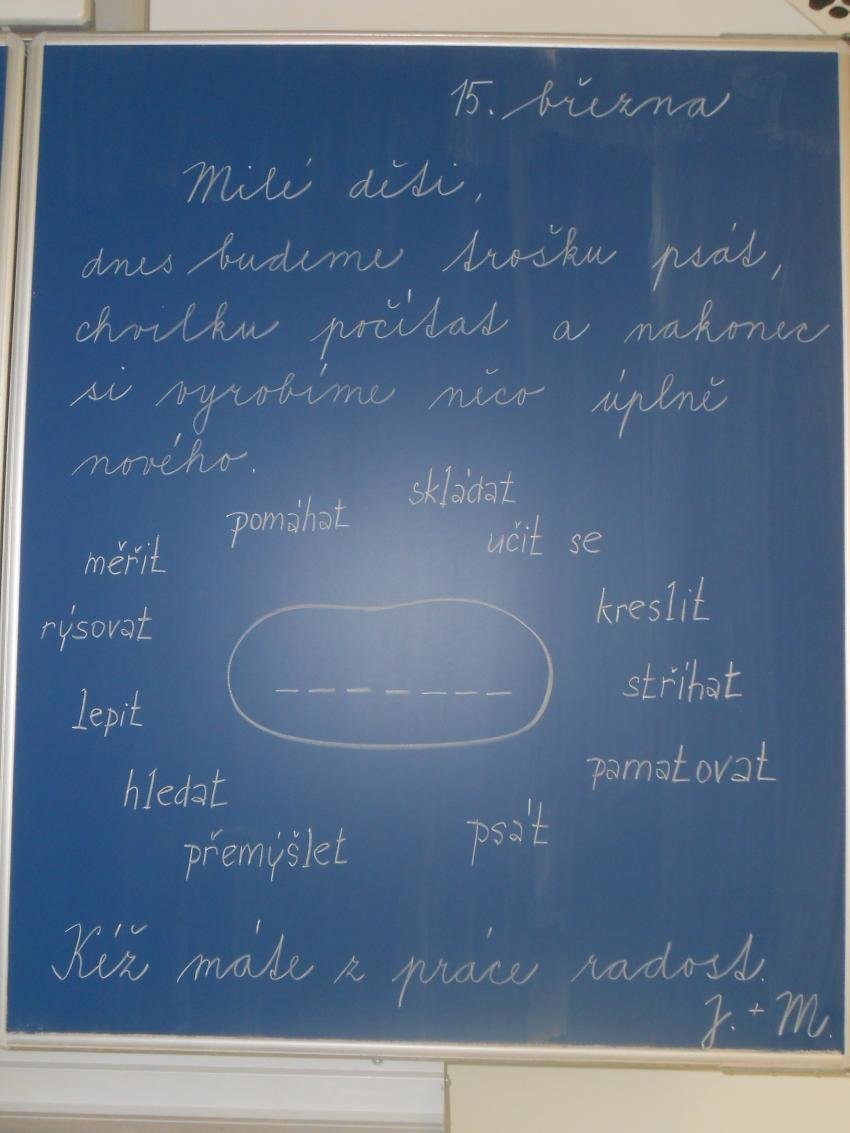 15. března
Milé děti,
dnes budeme trošku psát,
chvilku počítat a nakonec
si vyrobíme něco úplně
nového.
skládat
pomáhat
učit se
měřit
kreslit
rýsovat
stříhat
lepit
pamatovat
hledat
psát
přemýšlet
Kéž máte z práce radost.
J. + M.